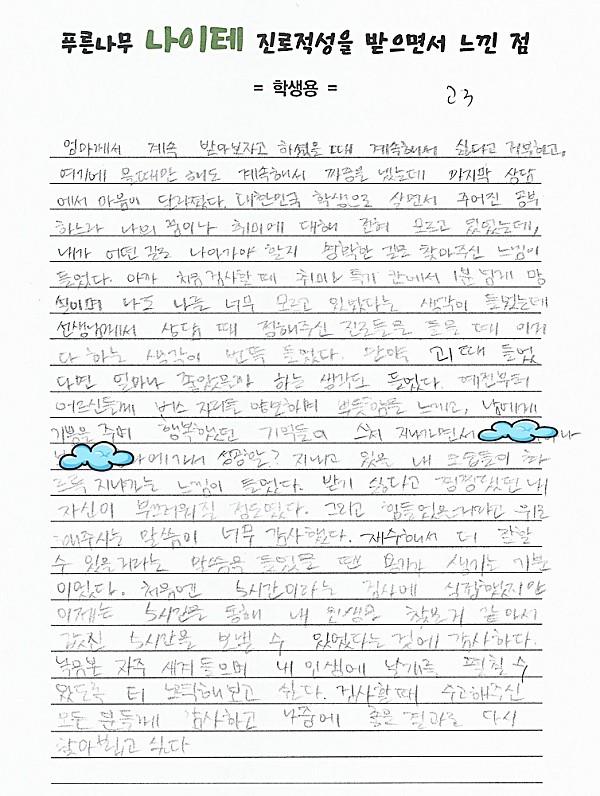 푸른나무 나이테 진로적성을 받으면서 느낀 점
= 학생용 =
고3
엄마께서 계속 받아보자고 하셨을 때 계속해서 싫다고 거부하고,
여기에 올때만 해도 계속해서 짜증을 냈는데 마지막 상담
에서 마음이 달라졌다. 대한민국 학생으로 살면서 주어진 공부
하느라 나의 꿈이나 취미에 대해 전혀 모르고 있었는데,
내가 어떤 길로 나아가야 할지 막막한 길을 찾아주신 느낌이
들었다. 아까 처음 검사할 때 취미와 특기 칸에서 1분 넘게 망
설이며 나도 나를 너무 모르고 있었다는 생각이 들었는데
선생님께서 상담 때 정해주신 진로들을 들을 때 이거
다 하는 생각이 번뜩 들었다. 만약 고1때 들었
다면 얼마나 좋았을까 하는 생각도 들었다. 예전부터
어르신들께 버스 자리를 양보하며 뿌듯함을 느끼고, 남에게
기쁨을 주며 행복했던 기억들이 스쳐 지나가면서
에가서 성공한? 지나고 있을 내 모습들이 하
르륵 지나가는 느낌이 들었다. 받기 싫다고 찡찡댔던 내
자신이 부끄러워질 정도였다. 그리고 힘들었을거라고 위로
해주시는 말씀이 너무 감사했다. 재수해서 더 잘할
수 있을거라는 말씀을 들었을 땐 용기가 생기는 기분
이었다. 처음엔 5시간이라는 검사에 식겁했지만
이제는 5시간을 통해 내 인생을 찾은거 같아서
값진 5시간을 보낼 수 있었다는 것에 감사하다.
녹음본 자주 새겨들으며 내 인생에 날개를 펼칠 수
있도록 더 노력해보고 싶다. 검사할때 수고해주신
모든 분들께 감사하고 나중에 좋은 결과로 다시
찾아뵙고 싶다